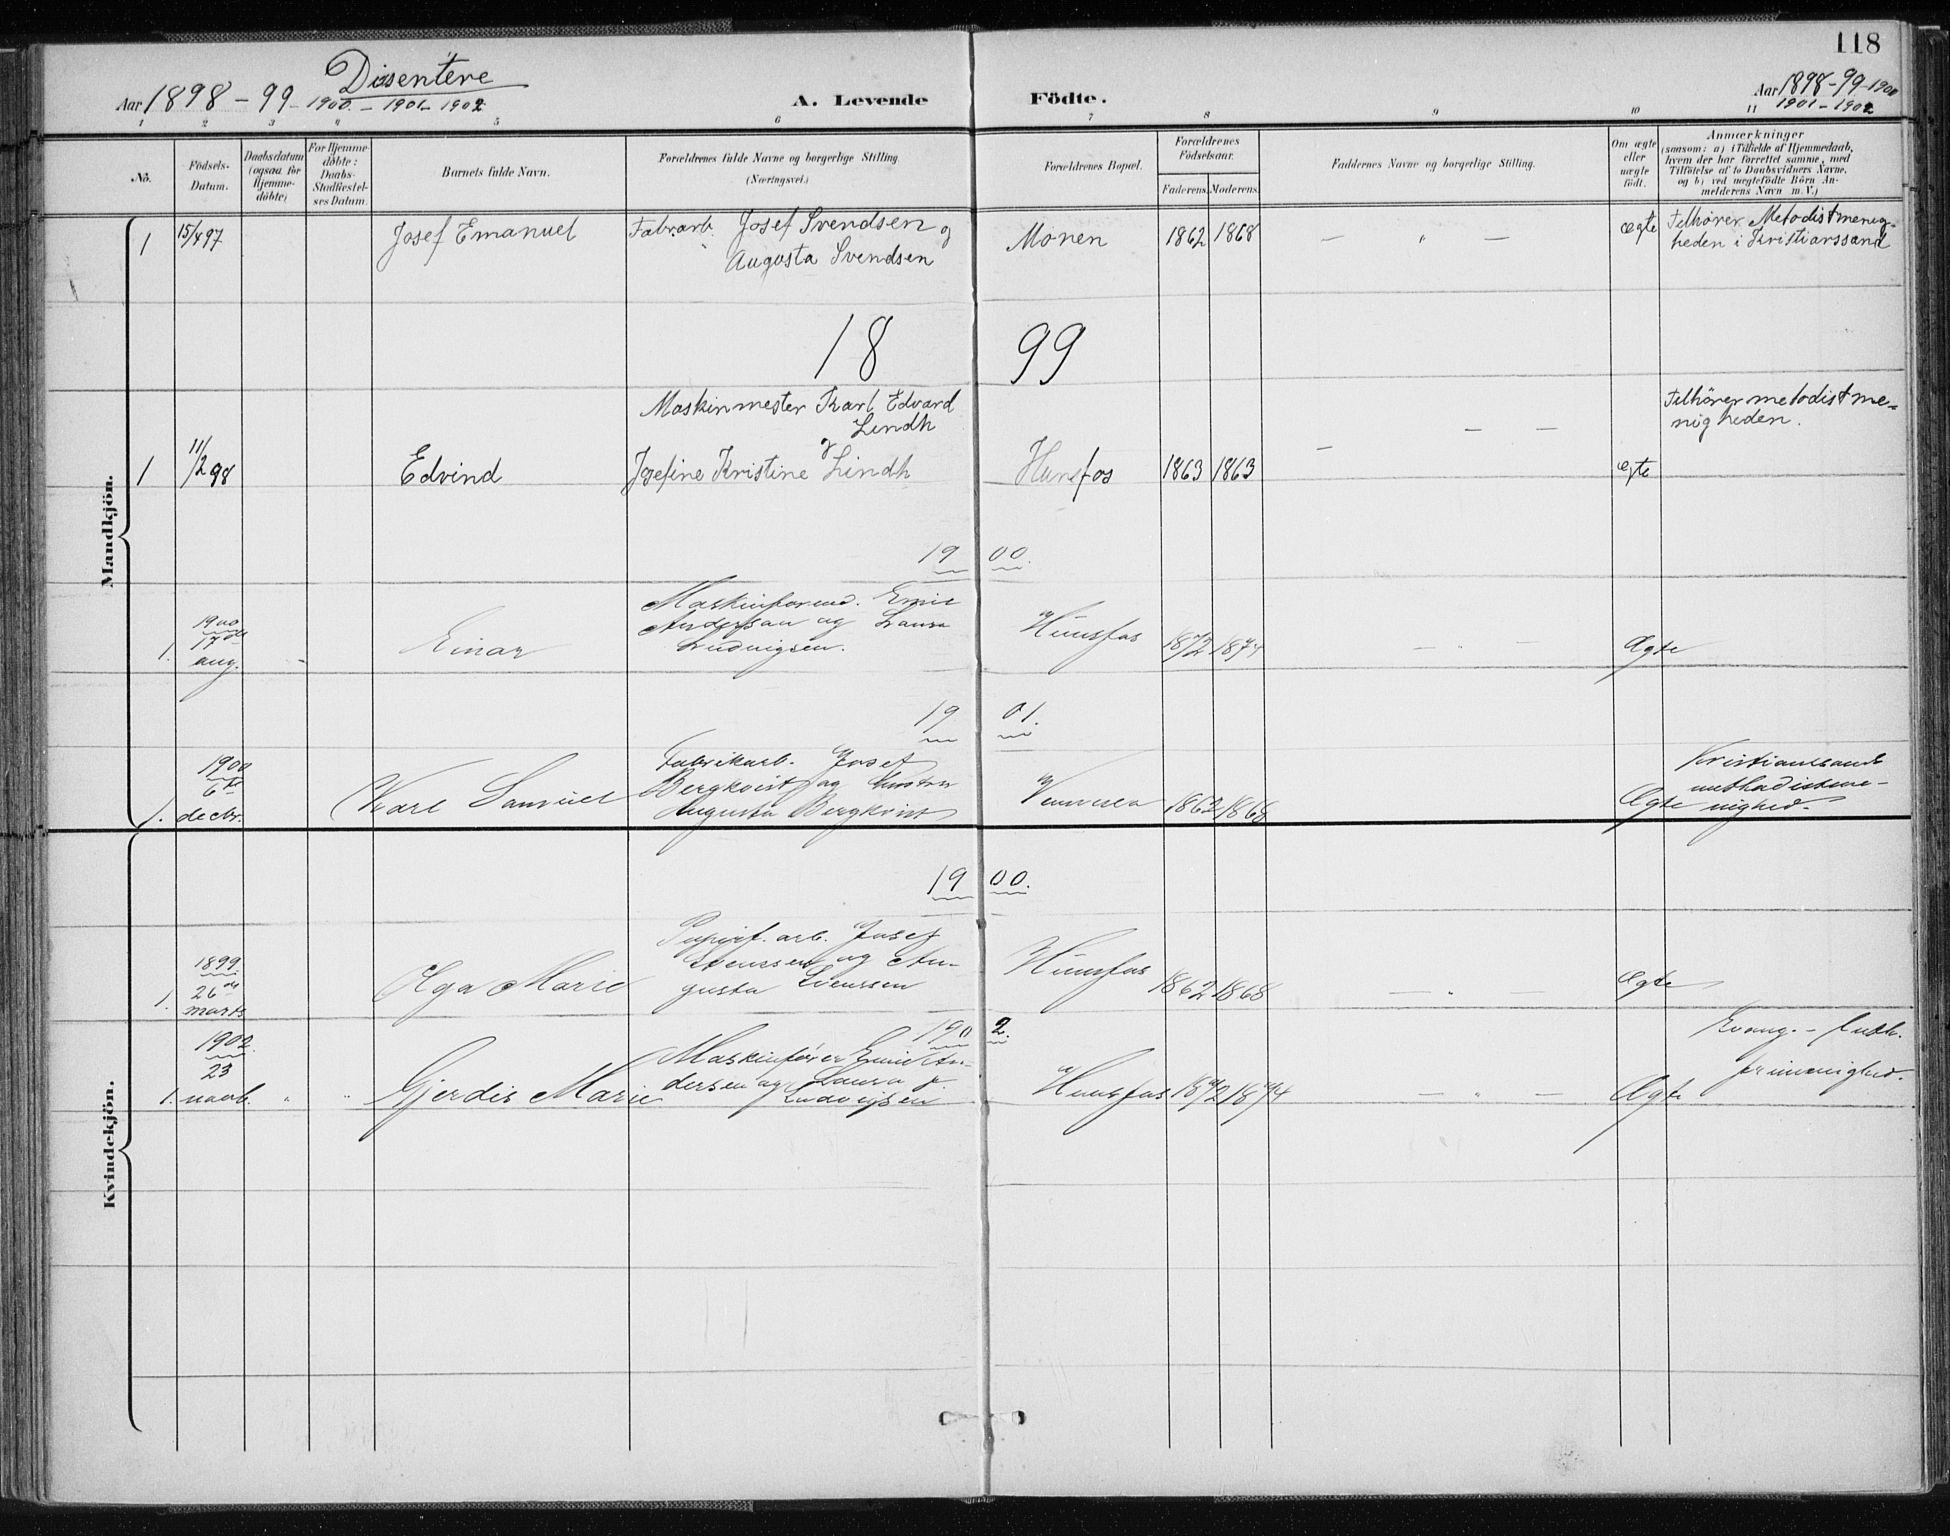 118
Disentere
Aar 1898-99-1900.-1901-1902
A. Levende Födte.
Aar 1898-99-1900
1901-1902
1 2 3 4 5 6 7 8 9 10 11
No.
Födsels-
Datum.
Daabsdatum
(ogsaa for
Hjemme-
døbte)
For Hjemme-
døbte:
Daabs-
Stadfæstel-
ses Datum.
Barnets fulde Navn.
Forældrenes fulde Navne og borgerlige Stilling
(Næringsvei.)
Forældrenes Bopæl.
Forældrenes
Födselsaar.
Faderens. Moderens.
Faddernes Navne og borgerlige Stilling.
Om ægte
eller
uægte
födt.
Anmærkninger
(saasom: a) i Tilfælde af Hjemmedaab,
hvem der har forrettet samme, med
Tilföielse af to Daabsvidners Navne,
og b) ved uægtefödte Börn An-
melderens Navn m. V.)
Mandkjön.
1 15/4 97 Josef Emanuel Fabrarb. Josef Svendsen og
Augosta Svendsen
Monen 1862 1868 — " — ægte
Tilhører Metodistmenig-
heden i Kristianssand
18 99
Maskinmester Karl Edvard
Lindh
og
1 11/2 98 Edvind Josefine Kristine Lindh
Hunsfos 1863 1863 — — — ægte
Tilhører metodistme-
nigheden.
19 00.
1. 1900
17de
aug.
Einar
Maskinformd. Emil
Andersen og Laura
Ludvigsen.
Hunsfos 1872 1874 — " — Ægte
19 01.
1. 1900
6te
decbr.
Karl Samuel
Fabrikarb. Josef
Bergkvist og hustru
Augusta Bergkvist
Vennesla 1862 1868 Ægte
Kristianssands
methodistme-
nighed.
Kvindekjön.
19 00.
1. 1899
26de
marts
Olga Marie
Papirf. arb. Josef
Svenssen og Au-
gusta Svenssen
Hunsfos 1862 1868 — " — Ægte
190 2.
1. 1902.
23
novb. " "
Gjerdis Marie
Maskinfører Emil An-
dersen og Laura f.
Ludvigsen
Hunsfos 1872 1874 — " — Ægte
Evang.-luth.
frimenighed.